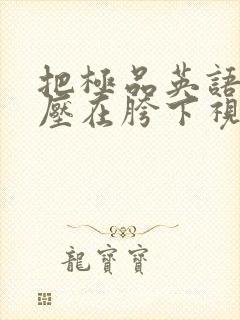 把極品英語
壓在胯下視
龍寶寶